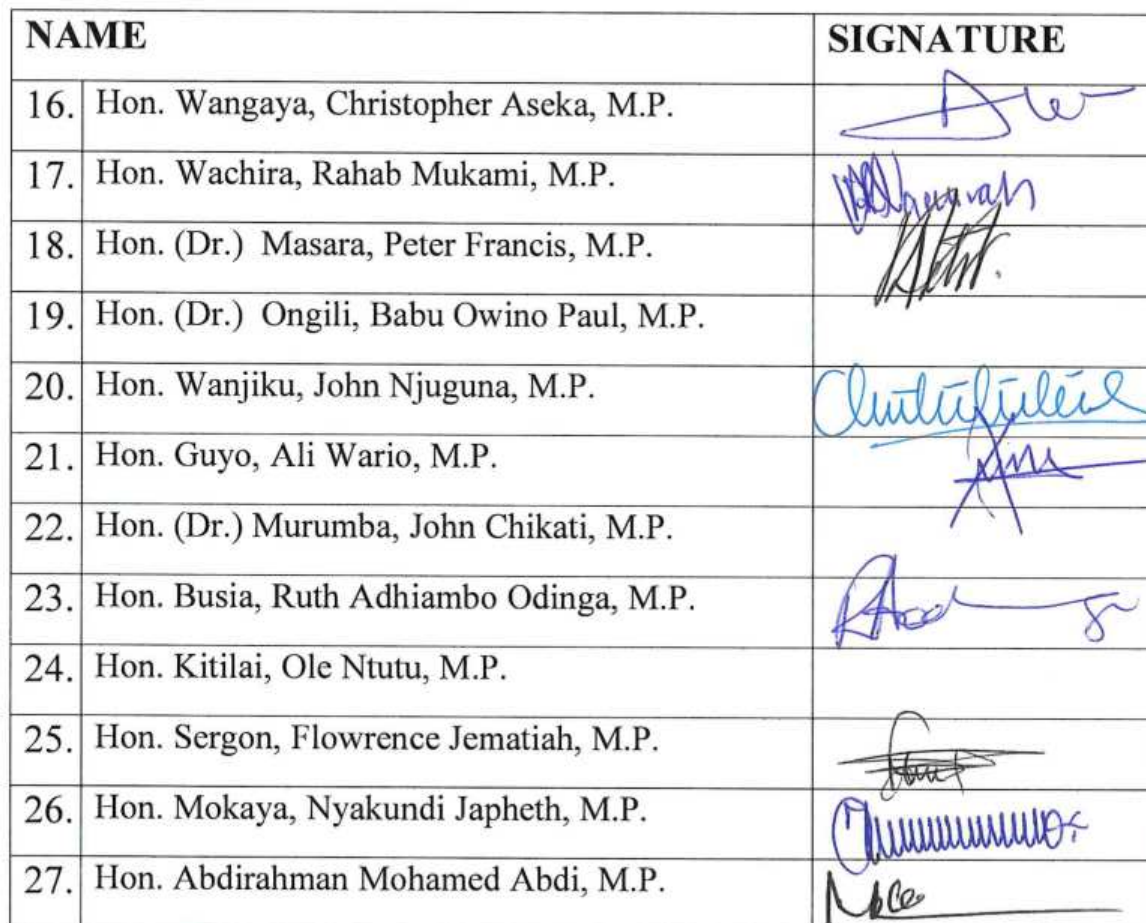 NAME SIGNATURE
16. Hon. Wangaya, Christopher Aseka, M.P.
17. Hon. Wachira, Rahab Mukami, M.P.
18. Hon. (Dr.) Masara, Peter Francis, M.P.
19. Hon. (Dr.) Ongili, Babu Owino Paul, M.P.
20. Hon. Wanjiku, John Njuguna, M.P.
21. Hon. Guyo, Ali Wario, M.P.
22. Hon. (Dr.) Murumba, John Chikati, M.P.
23. Hon. Busia, Ruth Adhiambo Odinga, M.P.
24. Hon. Kitilai, Ole Ntutu, M.P.
25. Hon. Sergon, Flowrence Jematiah, M.P.
26. Hon. Mokaya, Nyakundi Japheth, M.P.
27. Hon. Abdirahman Mohamed Abdi, M.P.